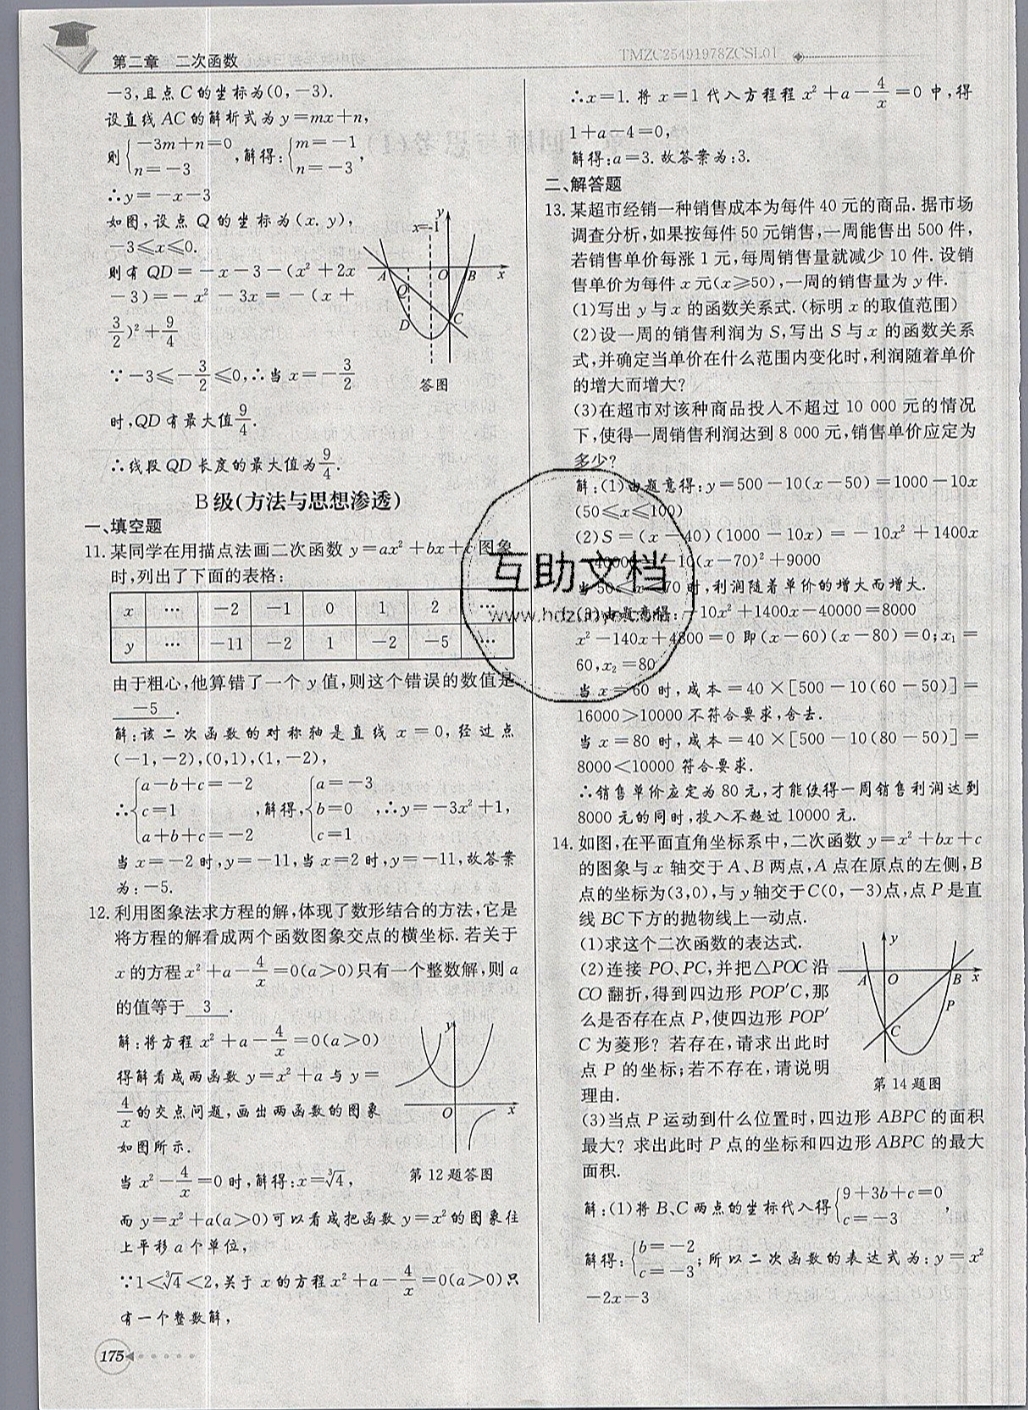 第二章 二次函数
TMZC25491978ZCSL01
-3,且点C的坐标为(0,-3).
设直线AC的解析式为y=mx+n,
则{-3m+n=0 n=-3,解得:{m=-1 n=-3,
∴y=-x-3
如图,设点Q的坐标为(x.y),
-3≤x≤0.
则有QD=-x-3-(x²+2x
-3)=-x²-3x=-(x+
3/2)²+9/4
∵-3≤-3/2≤0,∴当x=-3/2
时,QD有最大值9/4.
∴线段QD长度的最大值为9/4.
x=-1 y A O B x Q D C
答图
B级(方法与思想渗透)
一、填空题
11.某同学在用描点法画二次函数y=ax²+bx+c图象
时,列出了下面的表格:
x … -2 -1 0 1 2 …
y … -11 -2 1 -2 -5 …
由于粗心,他算错了一个y值,则这个错误的数值是
-5.
解:该二次函数的对称轴是直线x=0,经过点
(-1,-2),(0,1),(1,-2),
∴{a-b+c=-2 c=1 a+b+c=-2,解得,{a=-3 b=0 c=1,∴y=-3x²+1,
当x=-2时,y=-11,当x=2时,y=-11,故答案
为:-5.
12.利用图象法求方程的解,体现了数形结合的方法,它是
将方程的解看成两个函数图象交点的横坐标.若关于
x的方程x²+a-4/x=0(a>0)只有一个整数解,则a
的值等于 3 .
解:将方程x²+a-4/x=0(a>0)
得解看成两函数y=x²+a与y=
4/x的交点问题,画出两函数的图象
如图所示.
y O x
第12题答图
当x²-4/x=0时,解得:x=∛4,
而y=x²+a(a>0)可以看成把函数y=x²的图象往
上平移a个单位,
∵1<∛4<2,关于x的方程x²+a-4/x=0(a>0)只
有一个整数解,
175
∴x=1.将x=1代入方程程x²+a-4/x=0中,得
1+a-4=0,
解得:a=3.故答案为:3.
二、解答题
13.某超市经销一种销售成本为每件40元的商品.据市场
调查分析,如果按每件50元销售,一周能售出500件,
若销售单价每涨1元,每周销售量就减少10件.设销
售单价为每件x元(x≥50),一周的销售量为y件.
(1)写出y与x的函数关系式.(标明x的取值范围)
(2)设一周的销售利润为S,写出S与x的函数关系
式,并确定当单价在什么范围内变化时,利润随着单价
的增大而增大?
(3)在超市对该种商品投入不超过10 000元的情况
下,使得一周销售利润达到8 000元,销售单价应定为
多少?
解:(1)由题意得:y=500-10(x-50)=1000-10x
(50≤x≤100)
(2)S=(x-40)(1000-10x)=-10x²+1400x
-40000=-10(x-70)²+9000
当50≤x≤70时,利润随着单价的增大而增大.
(3)由题意得:-10x²+1400x-40000=8000
x²-140x+4800=0即(x-60)(x-80)=0;x₁=
60,x₂=80
当x=60时,成本=40×[500-10(60-50)]=
16000>10000不符合要求,舍去.
当x=80时,成本=40×[500-10(80-50)]=
8000<10000符合要求.
∴销售单价应定为80元,才能使得一周销售利润达到
8000元的同时,投入不超过10000元.
互助文档
www.hdzuoye.com
14.如图,在平面直角坐标系中,二次函数y=x²+bx+c
的图象与x轴交于A、B两点,A点在原点的左侧,B
点的坐标为(3,0),与y轴交于C(0,-3)点,点P是直
线BC下方的抛物线上一动点.
(1)求这个二次函数的表达式.
(2)连接PO、PC,并把△POC沿
CO翻折,得到四边形POP′C,那
么是否存在点P,使四边形POP′
C为菱形?若存在,请求出此时
点P的坐标;若不存在,请说明
理由.
y A O B x P C
第14题图
(3)当点P运动到什么位置时,四边形ABPC的面积
最大?求出此时P点的坐标和四边形ABPC的最大
面积.
解:(1)将B、C两点的坐标代入得{9+3b+c=0 c=-3,
解得:{b=-2 c=-3;所以二次函数的表达式为:y=x²
-2x-3